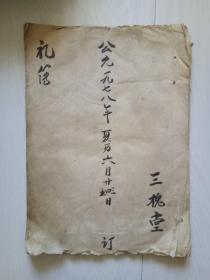 三槐堂
公元一九七八年 夏历六月廿日 订
礼簿